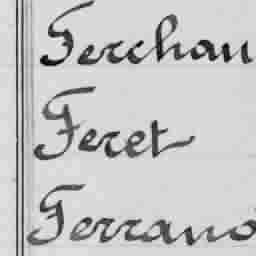 Ferchau
Feret
Ferrano